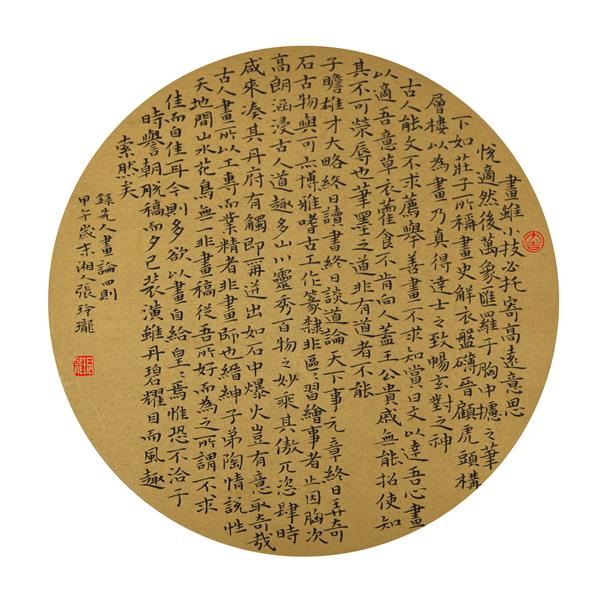 畫雖小技必托寄高遠意思
悅適然後萬象匯羅于胸中攄之筆
下如莊子所稱畫史解衣盤礴晉顧虎頭構
層樓以為畫乃真得達士之致暢玄對之神
古人能文不求薦舉善畫不求知賞曰文以達吾心畫
以適吾意草衣藿食不肯向人蓋王公貴戚無能招使知
其不可榮辱也筆墨之道非有道者不能
子瞻雄才大略終日讀書終日談道論天下事元章終日弄奇
石古物與可亦博雅嗜古工作篆隸非區區習繪事者止因胸次
高朗涵浸古人道趣多山川靈秀百物之妙乘其傲兀恣肆時
咸來湊其丹府有觸即爾迸出如石中爆火豈有意取奇哉
古人畫所以工專而業精者非畫師也縉紳子弟陶情該性
天地間山水花鳥無一非畫稿從吾所好而為之所謂不求
佳而自佳耳今則多欲以畫自給皇皇焉惟恐不洽于
時譽朝脫稿而夕已裝潢雖丹碧耀目而風趣
索然矣
錄先人畫論四則
甲午歲末湘人張玲瓏